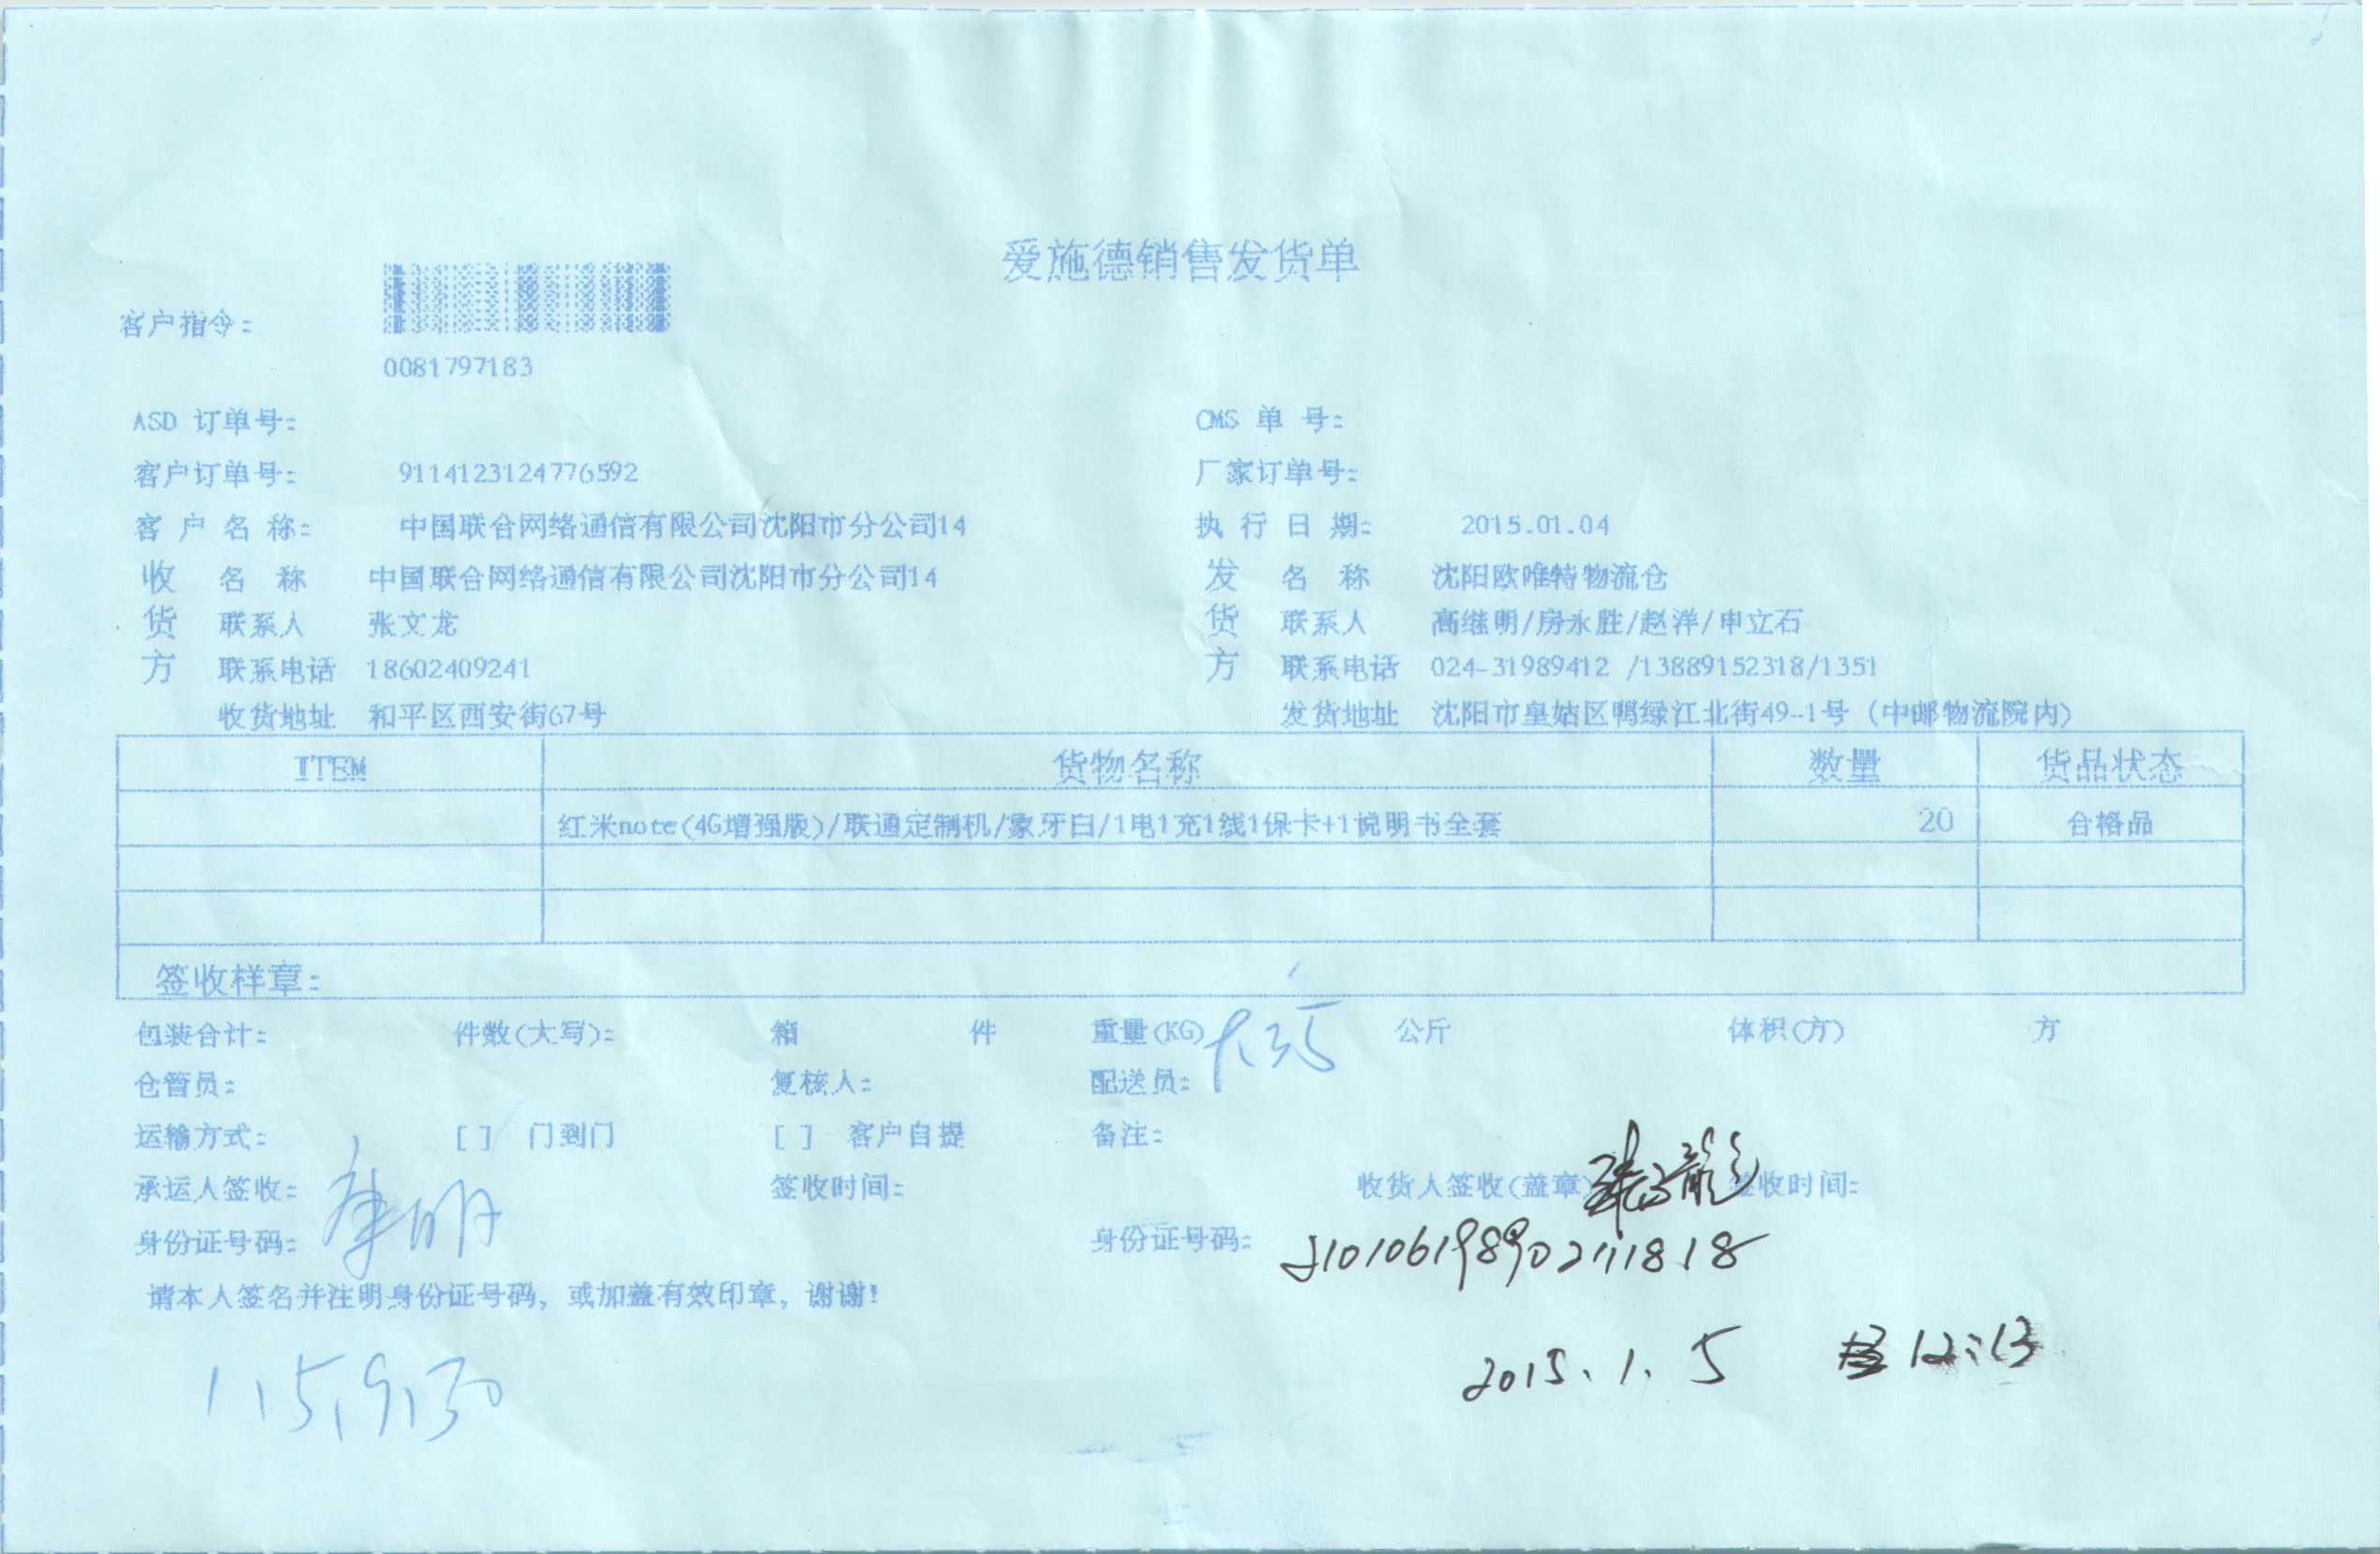 爱施德销售发货单
客户指令:
0081797183
ASD 订单号: CMS 单 号:
客户订单号: 9114123124776592 厂家订单号:
客 户 名 称: 中国联合网络通信有限公司沈阳市分公司14 执 行 日 期: 2015.01.04
收 名 称 中国联合网络通信有限公司沈阳市分公司14 发 名 称 沈阳欧唯特物流仓
货 联系人 张文龙 货 联系人 高继明/房永胜/赵洋/申立石
方 联系电话 18602409241 方 联系电话 024-31989412 /13889152318/1351
收货地址 和平区西安街67号 发货地址 沈阳市皇姑区鸭绿江北街49-1号 (中邮物流院内)
ITEM 货物名称 数量 货品状态
红米note(4G增强版)/联通定制机/象牙白/1电1充1线1保卡+1说明书全套 20 合格品
签收样章:
包装合计: 件数(大写): 箱 件 重量(KG) 公斤 体积(方) 方
仓管员: 复核人: 配送员:
运输方式: [ ] 门到门 [ ] 客户自提 备注:
承运人签收: 签收时间: 收货人签收(盖章) 签收时间:
身份证号码: 身份证号码:
请本人签名并注明身份证号码, 或加盖有效印章, 谢谢!
2015.1.5 12:13